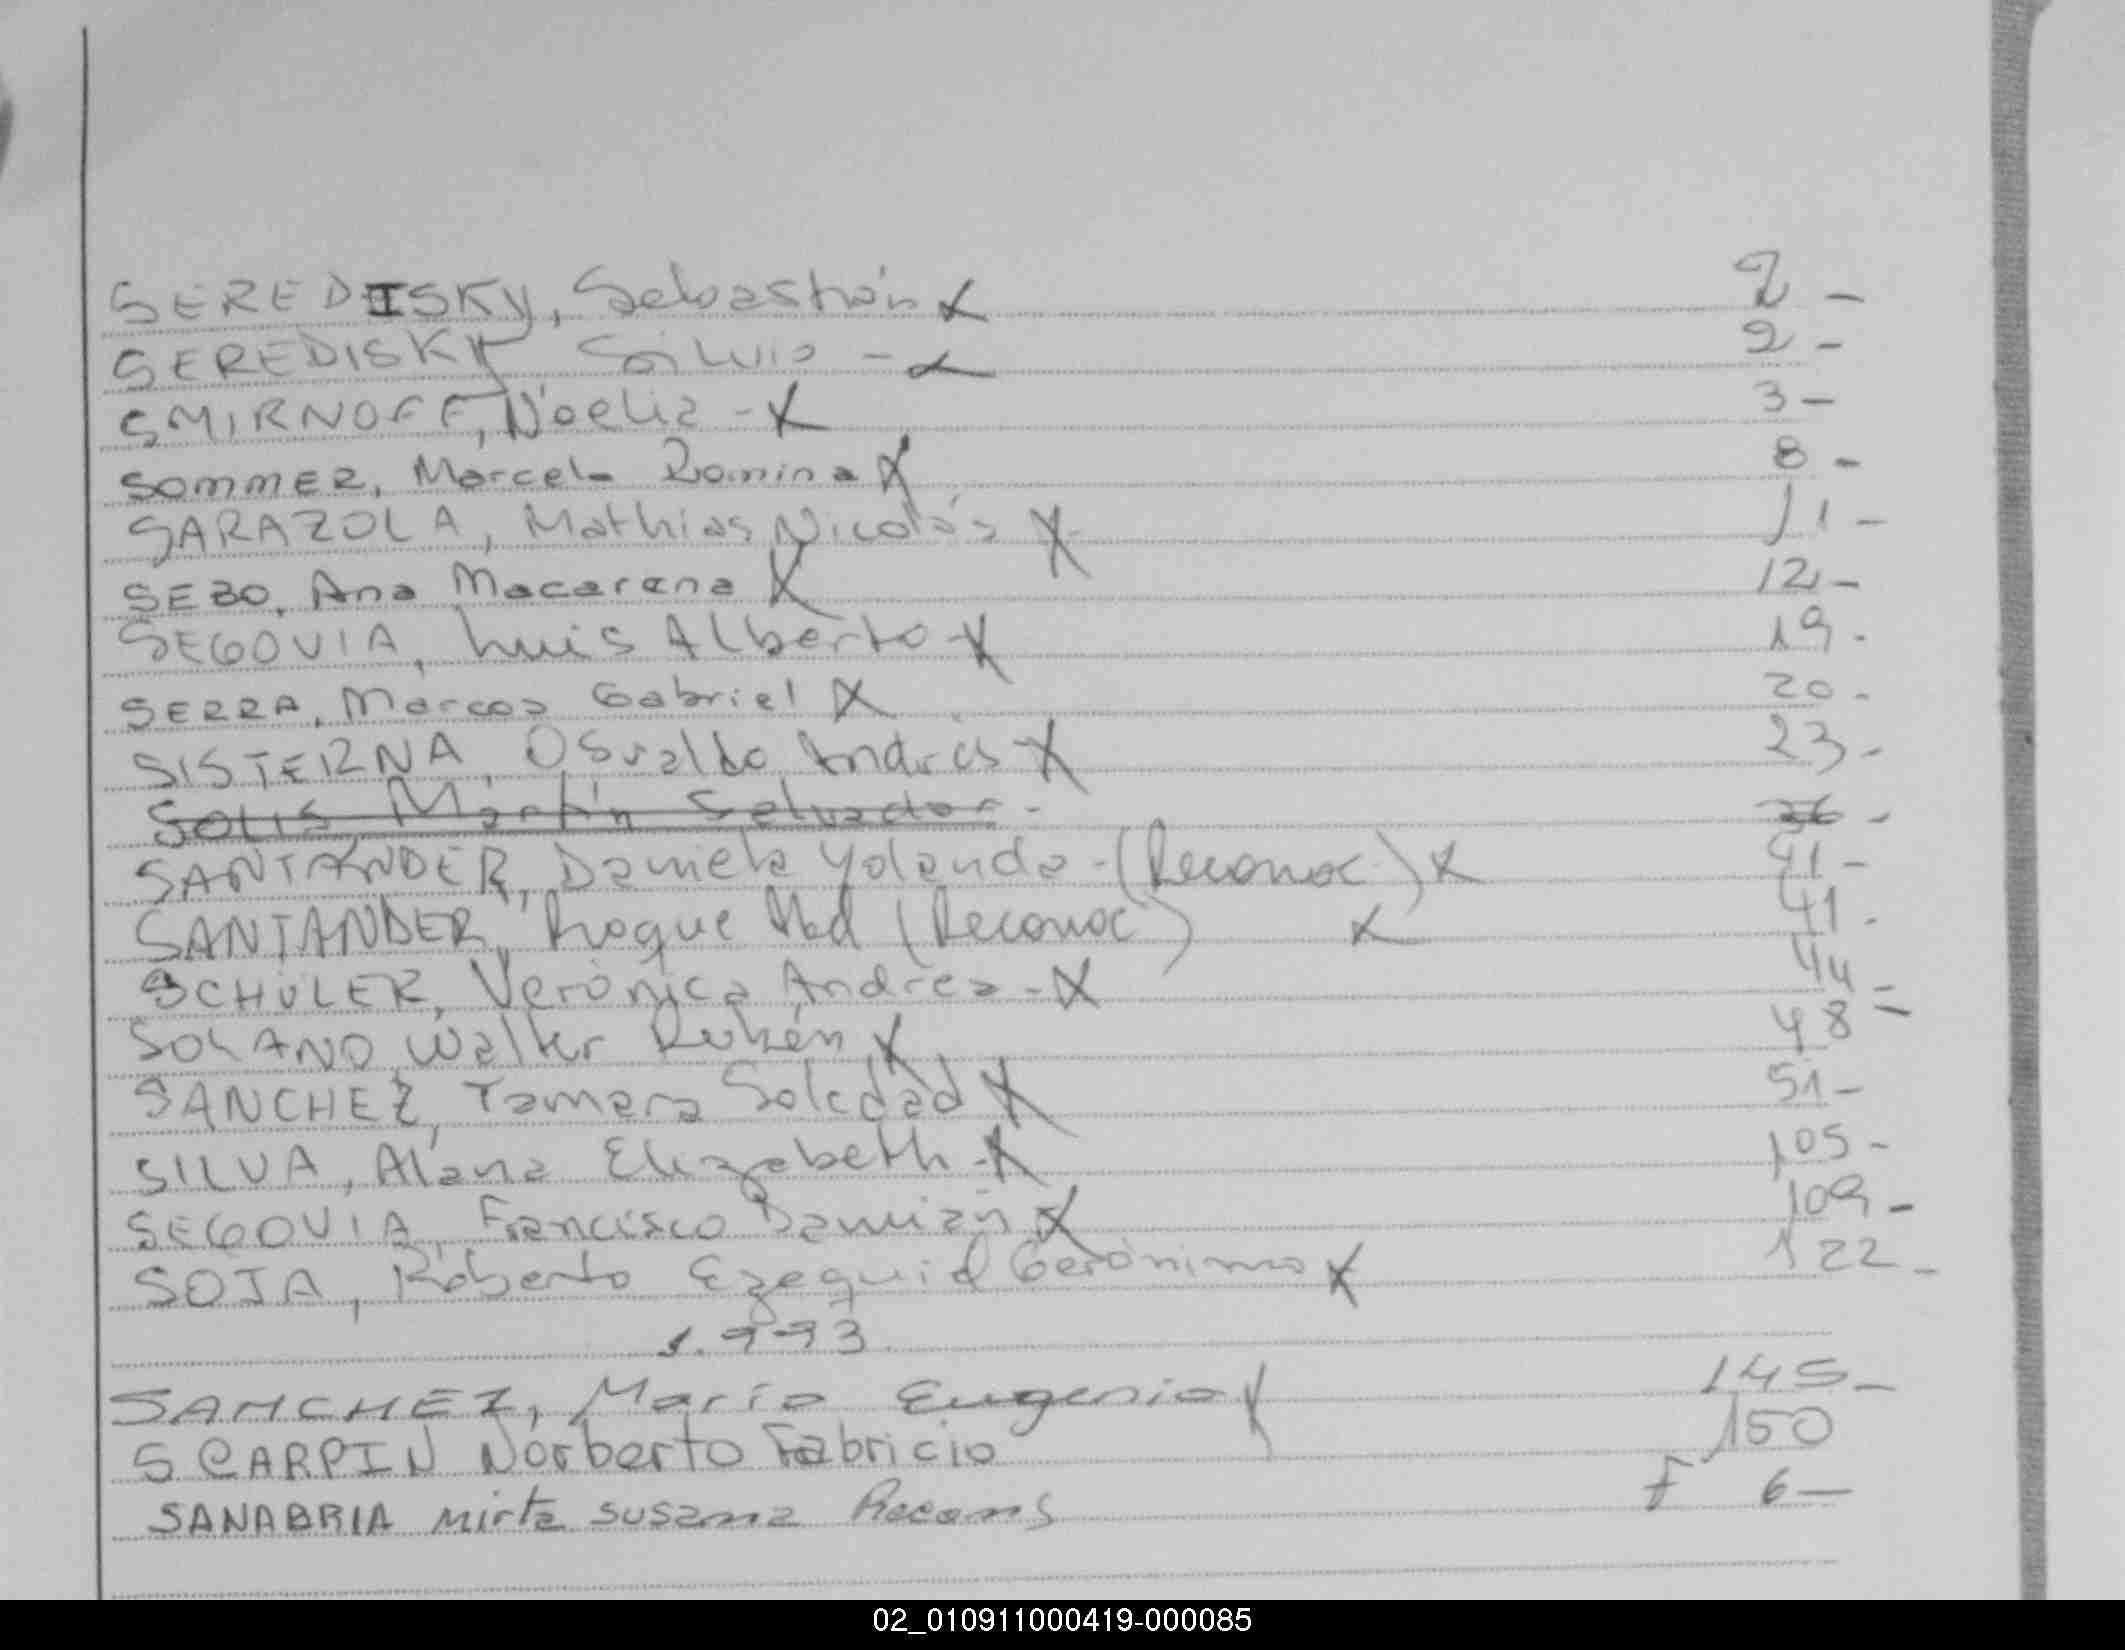 SEREDISKY, Sebastián X 2 -
SEREDISKY Silvio - X 2 -
SMIRNOFF, Noelia - X 3 -
SOMMER, Marcela Romina X 8 -
SARAZOLA, Mathias Nicolás X 11 -
SEBO, Ana Macarena X 12 -
SEGOVIA, Luis Alberto - X 19 -
SERRA, Marcos Gabriel X 20 -
SISTERNA, Osvaldo Andrés - X 23 -
SOLIS Martín Salvador - 36 -
SANTANDER, Daniela Yolanda - (Reconoc.) X 41 -
SANTANDER, Roque (Reconoc) X 41 -
SCHULER, Verónica Andrea - X 44 -
SOLANO, Walter Rubén X 48 -
SANCHEZ, Tamara Soledad X 51 -
SILVA, Alana Elizabeth - X 105 -
SEGOVIA, Francisco Damián X 109 -
SOJA, Roberto Ezequiel Gerónimo X 122 -
1.993
SANCHEZ, María Eugenia X 145 -
SCARPIN Norberto Fabricio 150
SANABRIA Mirta Susana F 6 -
02_010911000419-000085